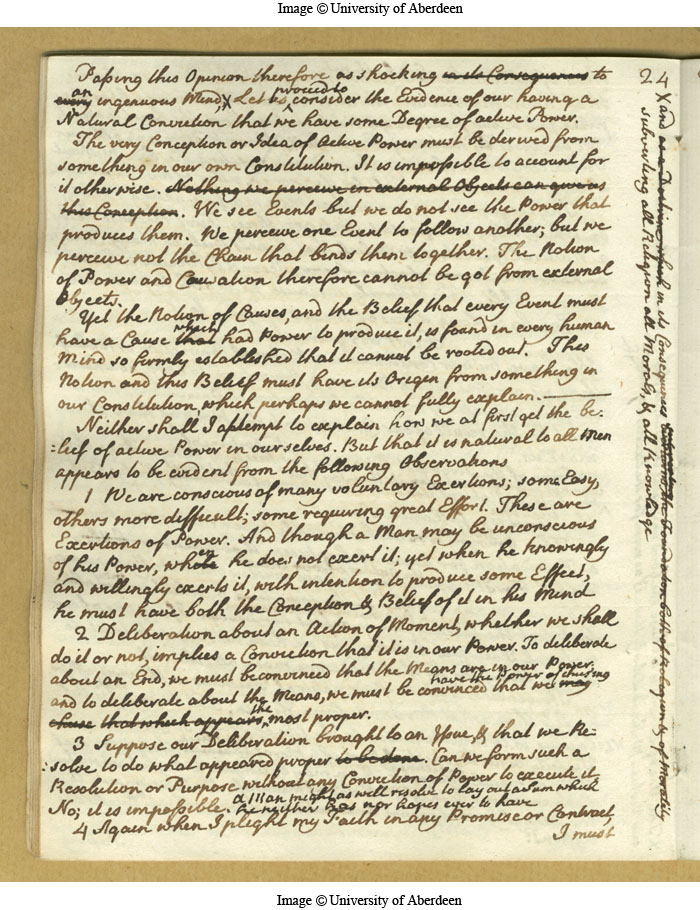 Image © University of Aberdeen
24
Passing this Opinion therefore as shocking in its Consequences to
every an ingenuous Mind, X Let us proceed to consider the Evidence of our having a
Natural Conviction that we have some Degree of active Power.
The very Conception or Idea of Active Power must be derived from
something in our own Constitution. It is impossible to account for
it otherwise. Nothing we perceive in external Objects can give us
this Conception. We see Events but we do not see the Power that
produces them. We perceive one Event to follow another; but we
perceive not the Chain that binds them together. The Notion
of Power and Causation therefore cannot be got from external
Objects.
Yet the Notion of Causes, and the Belief that every Event must
have a Cause that which had Power to produce it, is found in every human
Mind so firmly established that it cannot be rooted out. This
Notion and this Belief must have its Origin from something in
our Constitution, which perhaps we cannot fully explain.
Neither shall I attempt to explain how we at first get the be:
:lief of active Power in our selves. But that it is natural to all Men
appears to be evident from the following Observations
1 We are conscious of many voluntary Exertions; some Easy,
others more difficult; some requiring great Effort. These are
Exertions of Power. And though a Man may be unconscious
of his Power, when he does not exert it; yet when he knowingly
and willingly exerts it, with intention to produce some Effect,
he must have both the Conception & Belief of it in his Mind
2 Deliberation about an Action of Moment, whether we shall
do it or not, implies a Conviction that it is in our Power. To deliberate
about an End, we must be convinced that the Means are in our Power;
and to deliberate about the Means, we must be convinced that we may have the Power of chusing
chuse that which appears the most proper.
3 Suppose our Deliberation brought to an Issue, & that we Re-
:solve to do what appeared proper to be done. Can we form such a
Resolution or Purpose without any Conviction of Power to execute it
No; it is impossible. a Man might as well resolve to lay out a Sum which
he neither has nor hopes ever to have
4 Again when I plight my Faith in any Promise or Contract,
I must
X and as a Doctrine which in its Consequences
subverting all Religion all Morals, & all Knowledge
Image © University of Aberdeen